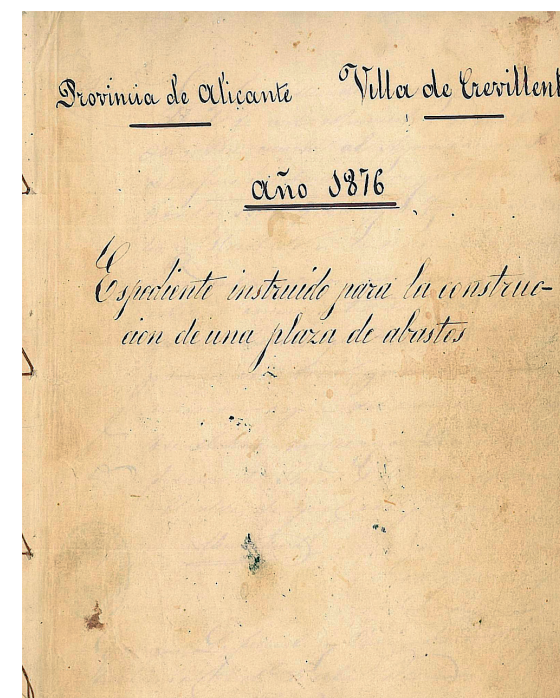 Provincia de Alicante Villa de Crevillent
año 1876
Espediente instruido para la construc-
cion de una plaza de abastos